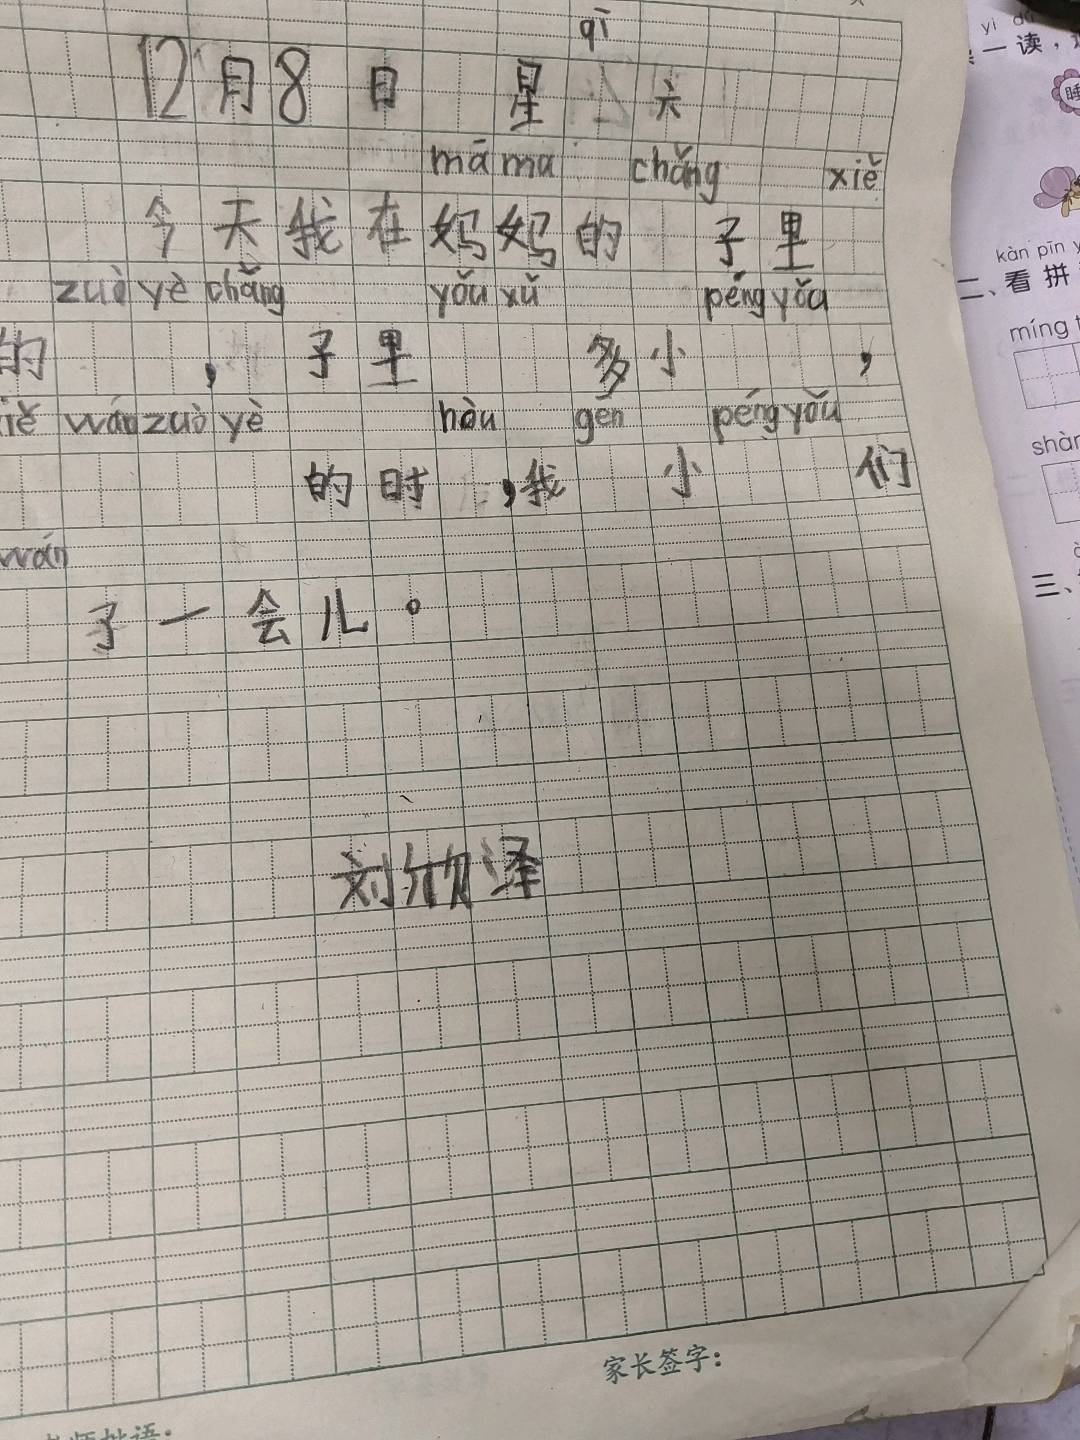 qī
12月8日 星 六
mā ma chǎng xiě
今天我在妈妈的 子里
zuò yè chǎng yǒu xǔ péng yǒu
的 , 子里 多小 ,
xiě wán zuò yè hòu gēn péng yǒu
的时 ,我 小 们
wán
子一会儿。
刘欣泽
家长签字:
yì
一读,
睡
kàn pīn
二、看拼
míng
shàn
三、